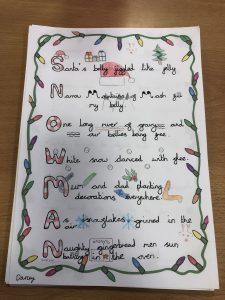 Santa's belly jiggled like jelly
Mountains of Mash fill
my belly.
One long river of gravy and
our bellies being free.
White snow danced with glee.
Mum and dad planting
decorations everywhere.
As snowflakes grinned in the
air
Naughty gingerbread men sun
bathing in the oven.
Darcy